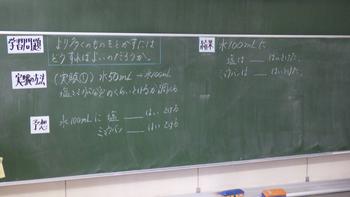 学習問題
より多くのものをとかすには
どうすればよいのだろうか。
実験の方法
(実験①) 水50mL → 水100mL
塩とミョウバンがどのくらいとけるか調べる
予想
水100mLに 塩 ___ はい とける
ミョウバン ___ はい とける
結果
水100mLに
塩は ___ はいとけた。
ミョウバンは ___ はいとけた。